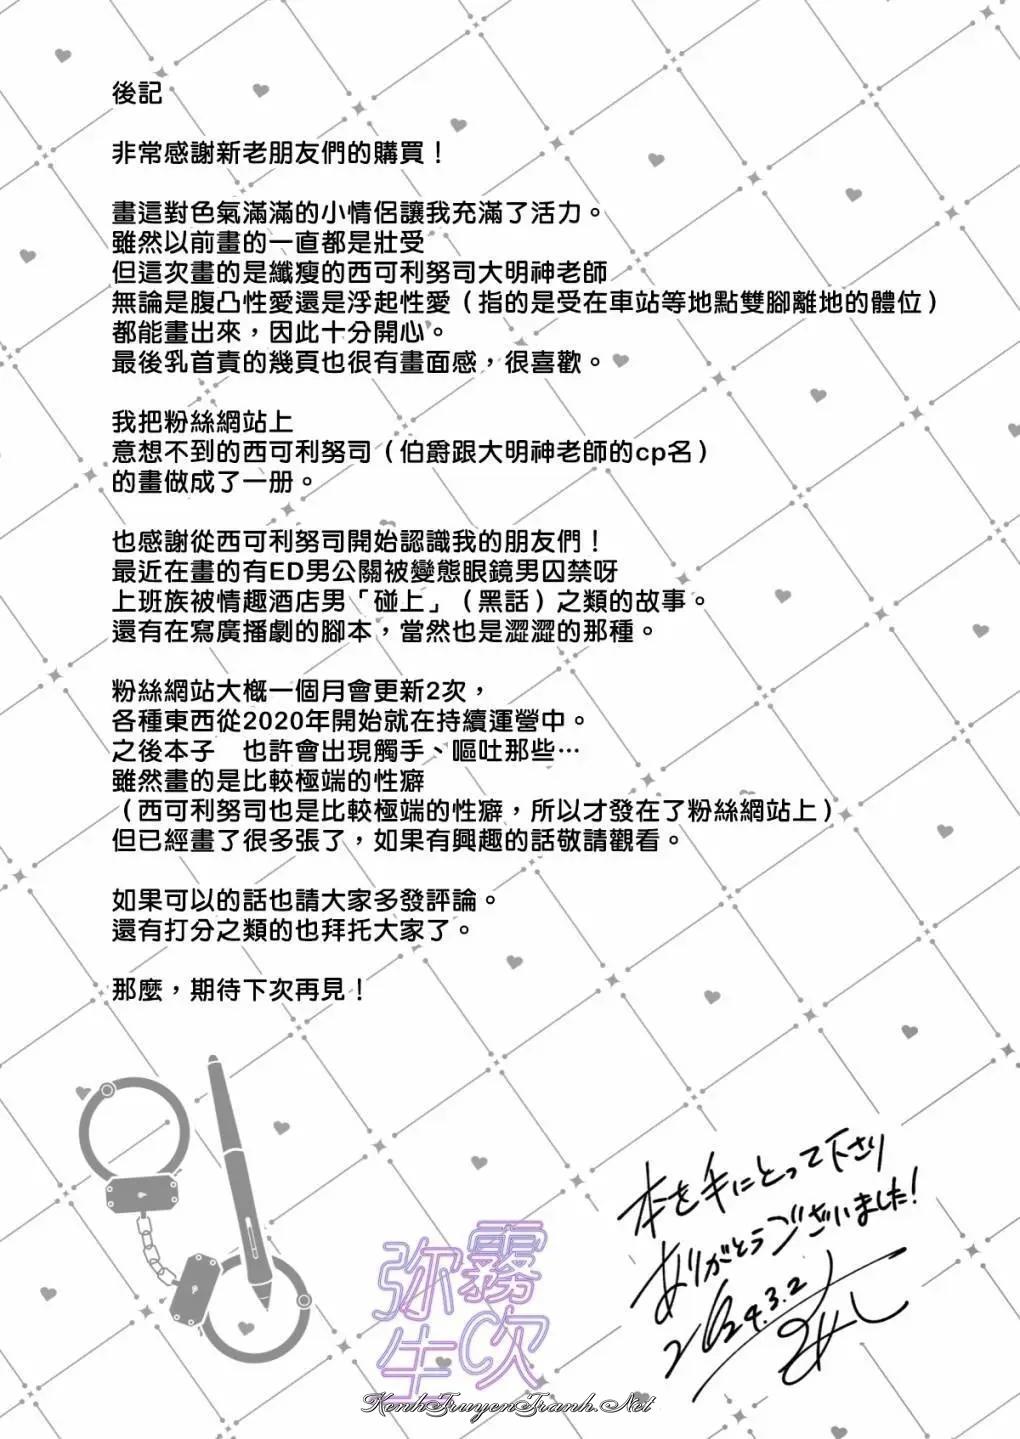 後記
非常感謝新老朋友們的購買！
畫這對色氣滿滿的小情侶讓我充滿了活力。
雖然以前畫的一直都是壯受
但這次畫的是纖瘦的西可利努司大明神老師
無論是腹凸性愛還是浮起性愛（指的是受在車站等地點雙腳離地的體位）
都能畫出來，因此十分開心。
最後乳首責的幾頁也很有畫面感，很喜歡。
我把粉絲網站上
意想不到的西可利努司（伯爵跟大明神老師的cp名）
的畫做成了一册。
也感謝從西可利努司開始認識我的朋友們！
最近在畫的有ED男公關被變態眼鏡男囚禁呀
上班族被情趣酒店男「碰上」（黑話）之類的故事。
還有在寫廣播劇的腳本，當然也是澀澀的那種。
粉絲網站大概一個月會更新2次，
各種東西從2020年開始就在持續運營中。
之後本子　也許會出現觸手、嘔吐那些…
雖然畫的是比較極端的性癖
（西可利努司也是比較極端的性癖，所以才發在了粉絲網站上）
但已經畫了很多張了，如果有興趣的話敬請觀看。
如果可以的話也請大家多發評論。
還有打分之類的也拜托大家了。
那麼，期待下次再見！
本を手にとって下さり
ありがとうございました！
2024.3.2
霧次
弥生
KenhTruyenTranh.Net